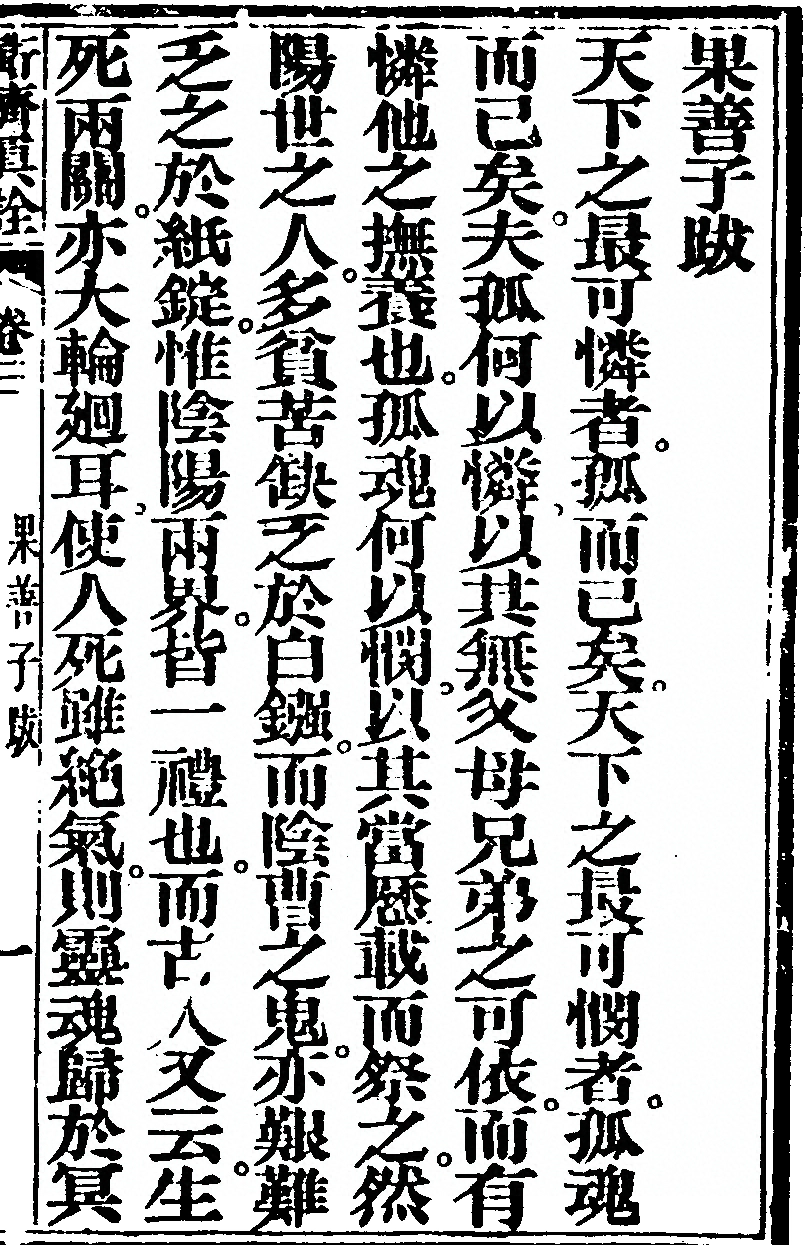 果善子跋
天下之最可憐者孤而已矣天下之最可憫者孤魂
而已矣夫孤何以憐以其無父母兄弟之可依而有
憐他之撫養也孤魂何以憫以其當厯載而祭之然
陽世之人多貧苦缺乏於白鏹而陰曹之鬼亦艱難
乏之於紙錠惟陰陽兩界皆一禮也而古人又云生
死兩關亦大輪廻耳使人死雖絶氣則靈魂歸於冥
濟真詮 卷三 果善子跋 一